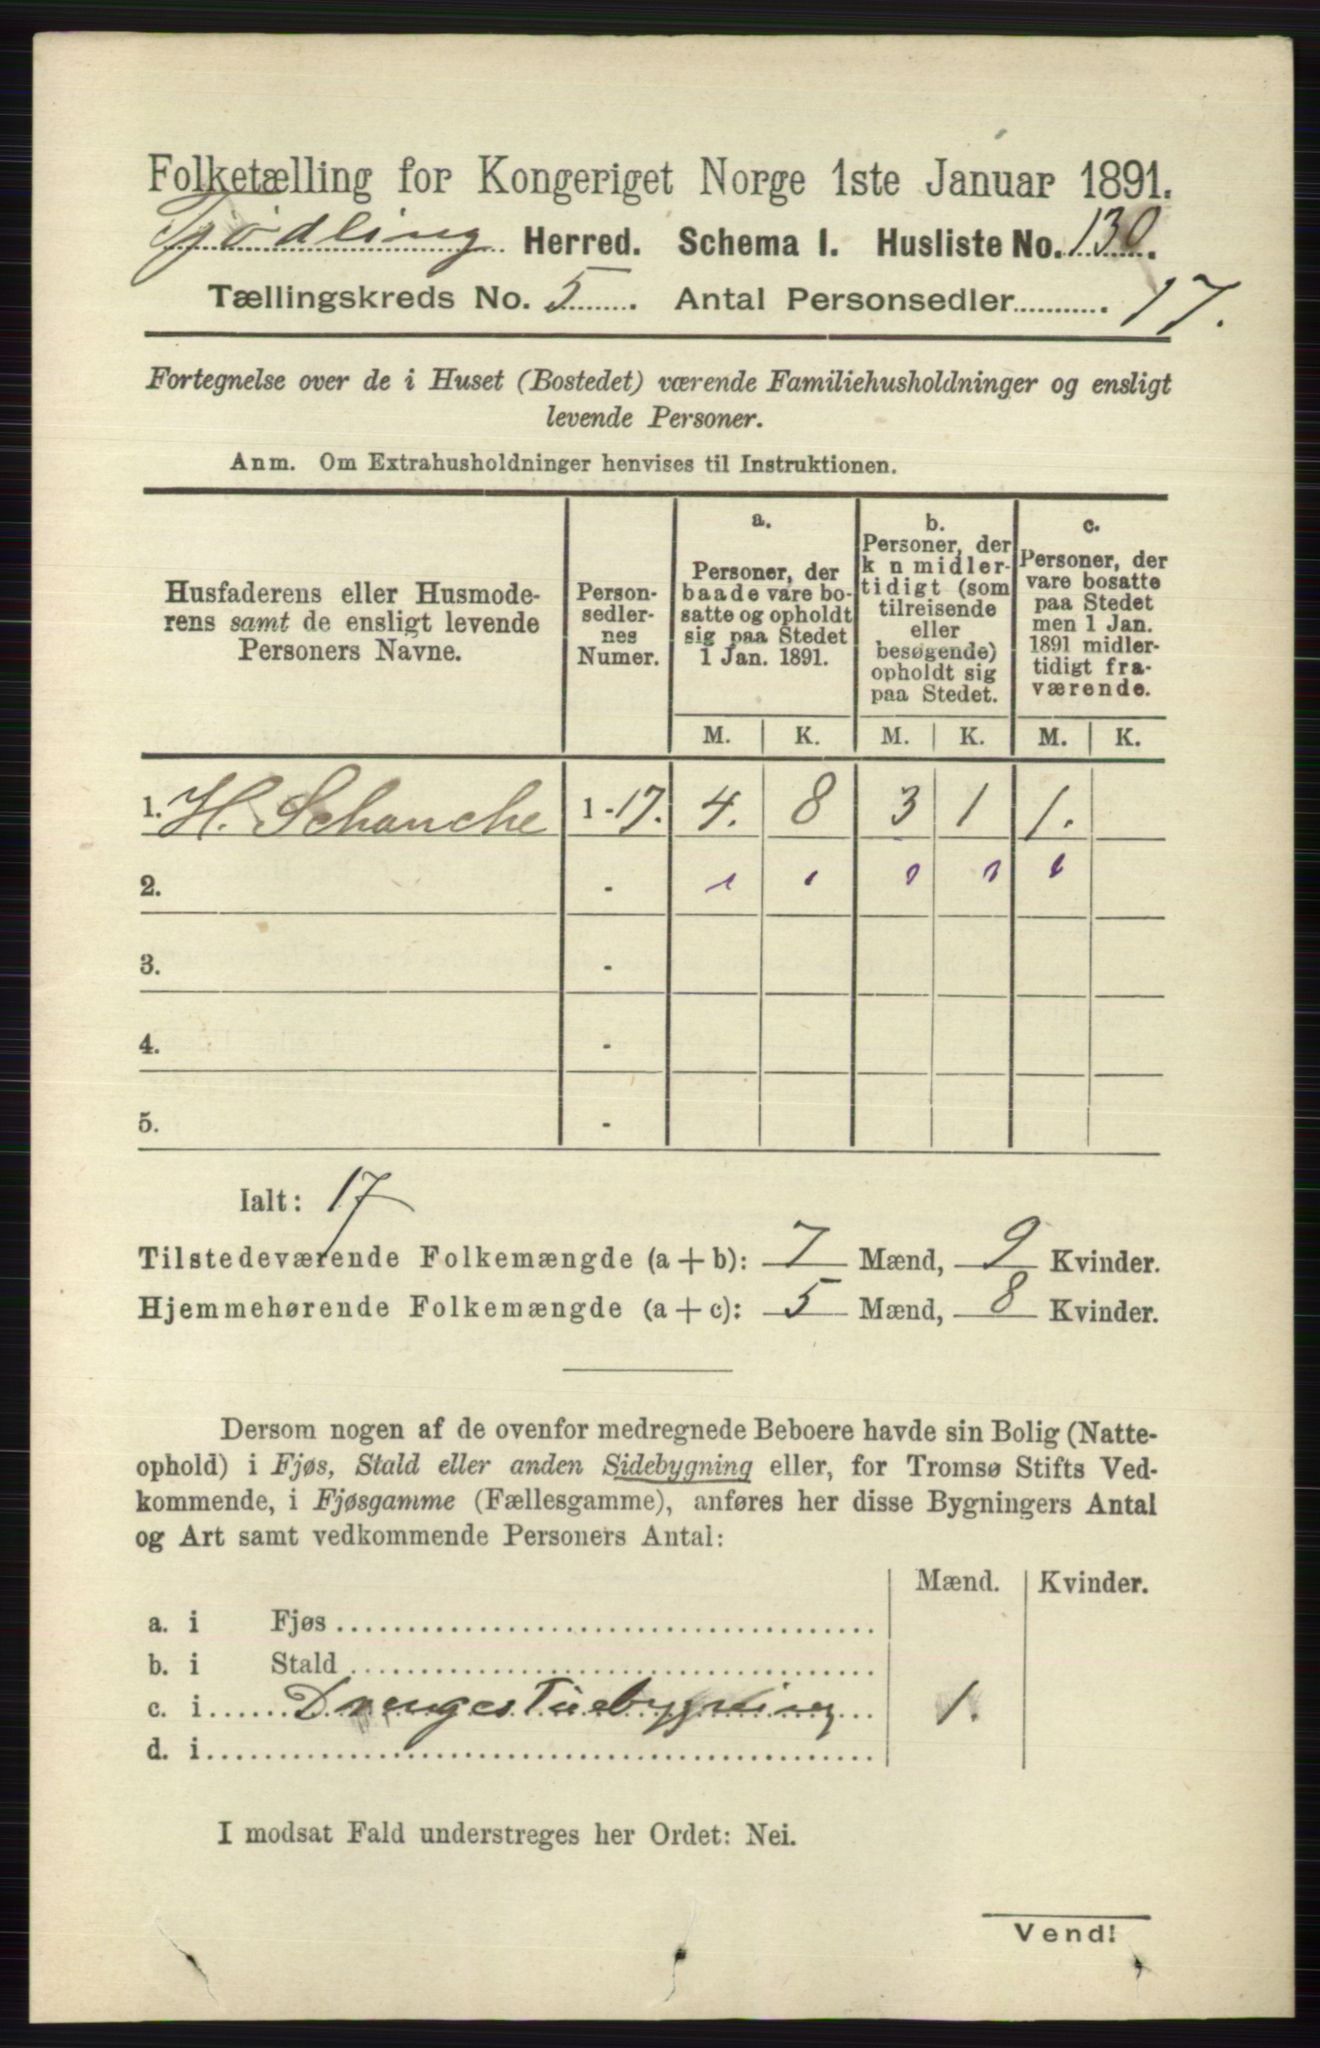 Folketælling for Kongeriget Norge 1ste Januar 1891.
Tjødling Herred. Schema I. Husliste No. 130.
Tællingskreds No. 5. Antal Personsedler 17.
Fortegnelse over de i Huset (Bostedet) værende Familiehusholdninger og ensligt
levende Personer.
Anm. Om Extrahusholdninger henvises til Instruktionen.
Husfaderens eller Husmode-
rens samt de ensligt levende
Personers Navne.
Person-
sedler-
nes
Numer.
a.
Personer, der
baade vare bo-
satte og opholdt
sig paa Stedet
1 Jan. 1891.
b.
Personer, der
k n midler-
tidigt (som
tilreisende
eller
besøgende)
opholdt sig
paa Stedet.
c.
Personer, der
vare bosatte
paa Stedet
men 1 Jan.
1891 midler-
tidigt fra-
værende.
M. K. M. K. M. K.
1. H. Schanche 1-17. 4. 8 3 1 1.
2. -
3. -
4. -
5. -
Ialt: 17
Tilstedeværende Folkemængde (a + b): 7 Mænd, 9 Kvinder.
Hjemmehørende Folkemængde (a + c): 5 Mænd, 8 Kvinder.
Dersom nogen af de ovenfor medregnede Beboere havde sin Bolig (Natte-
ophold) i Fjøs, Stald eller anden Sidebygning eller, for Tromsø Stifts Ved-
kommende, i Fjøsgamme (Fællesgamme), anføres her disse Bygningers Antal
og Art samt vedkommende Personers Antal:
Mænd. Kvinder.
a. i Fjøs
b. i Stald
c. i Drengestuebygning 1.
d. i
I modsat Fald understreges her Ordet: Nei.
Vend!